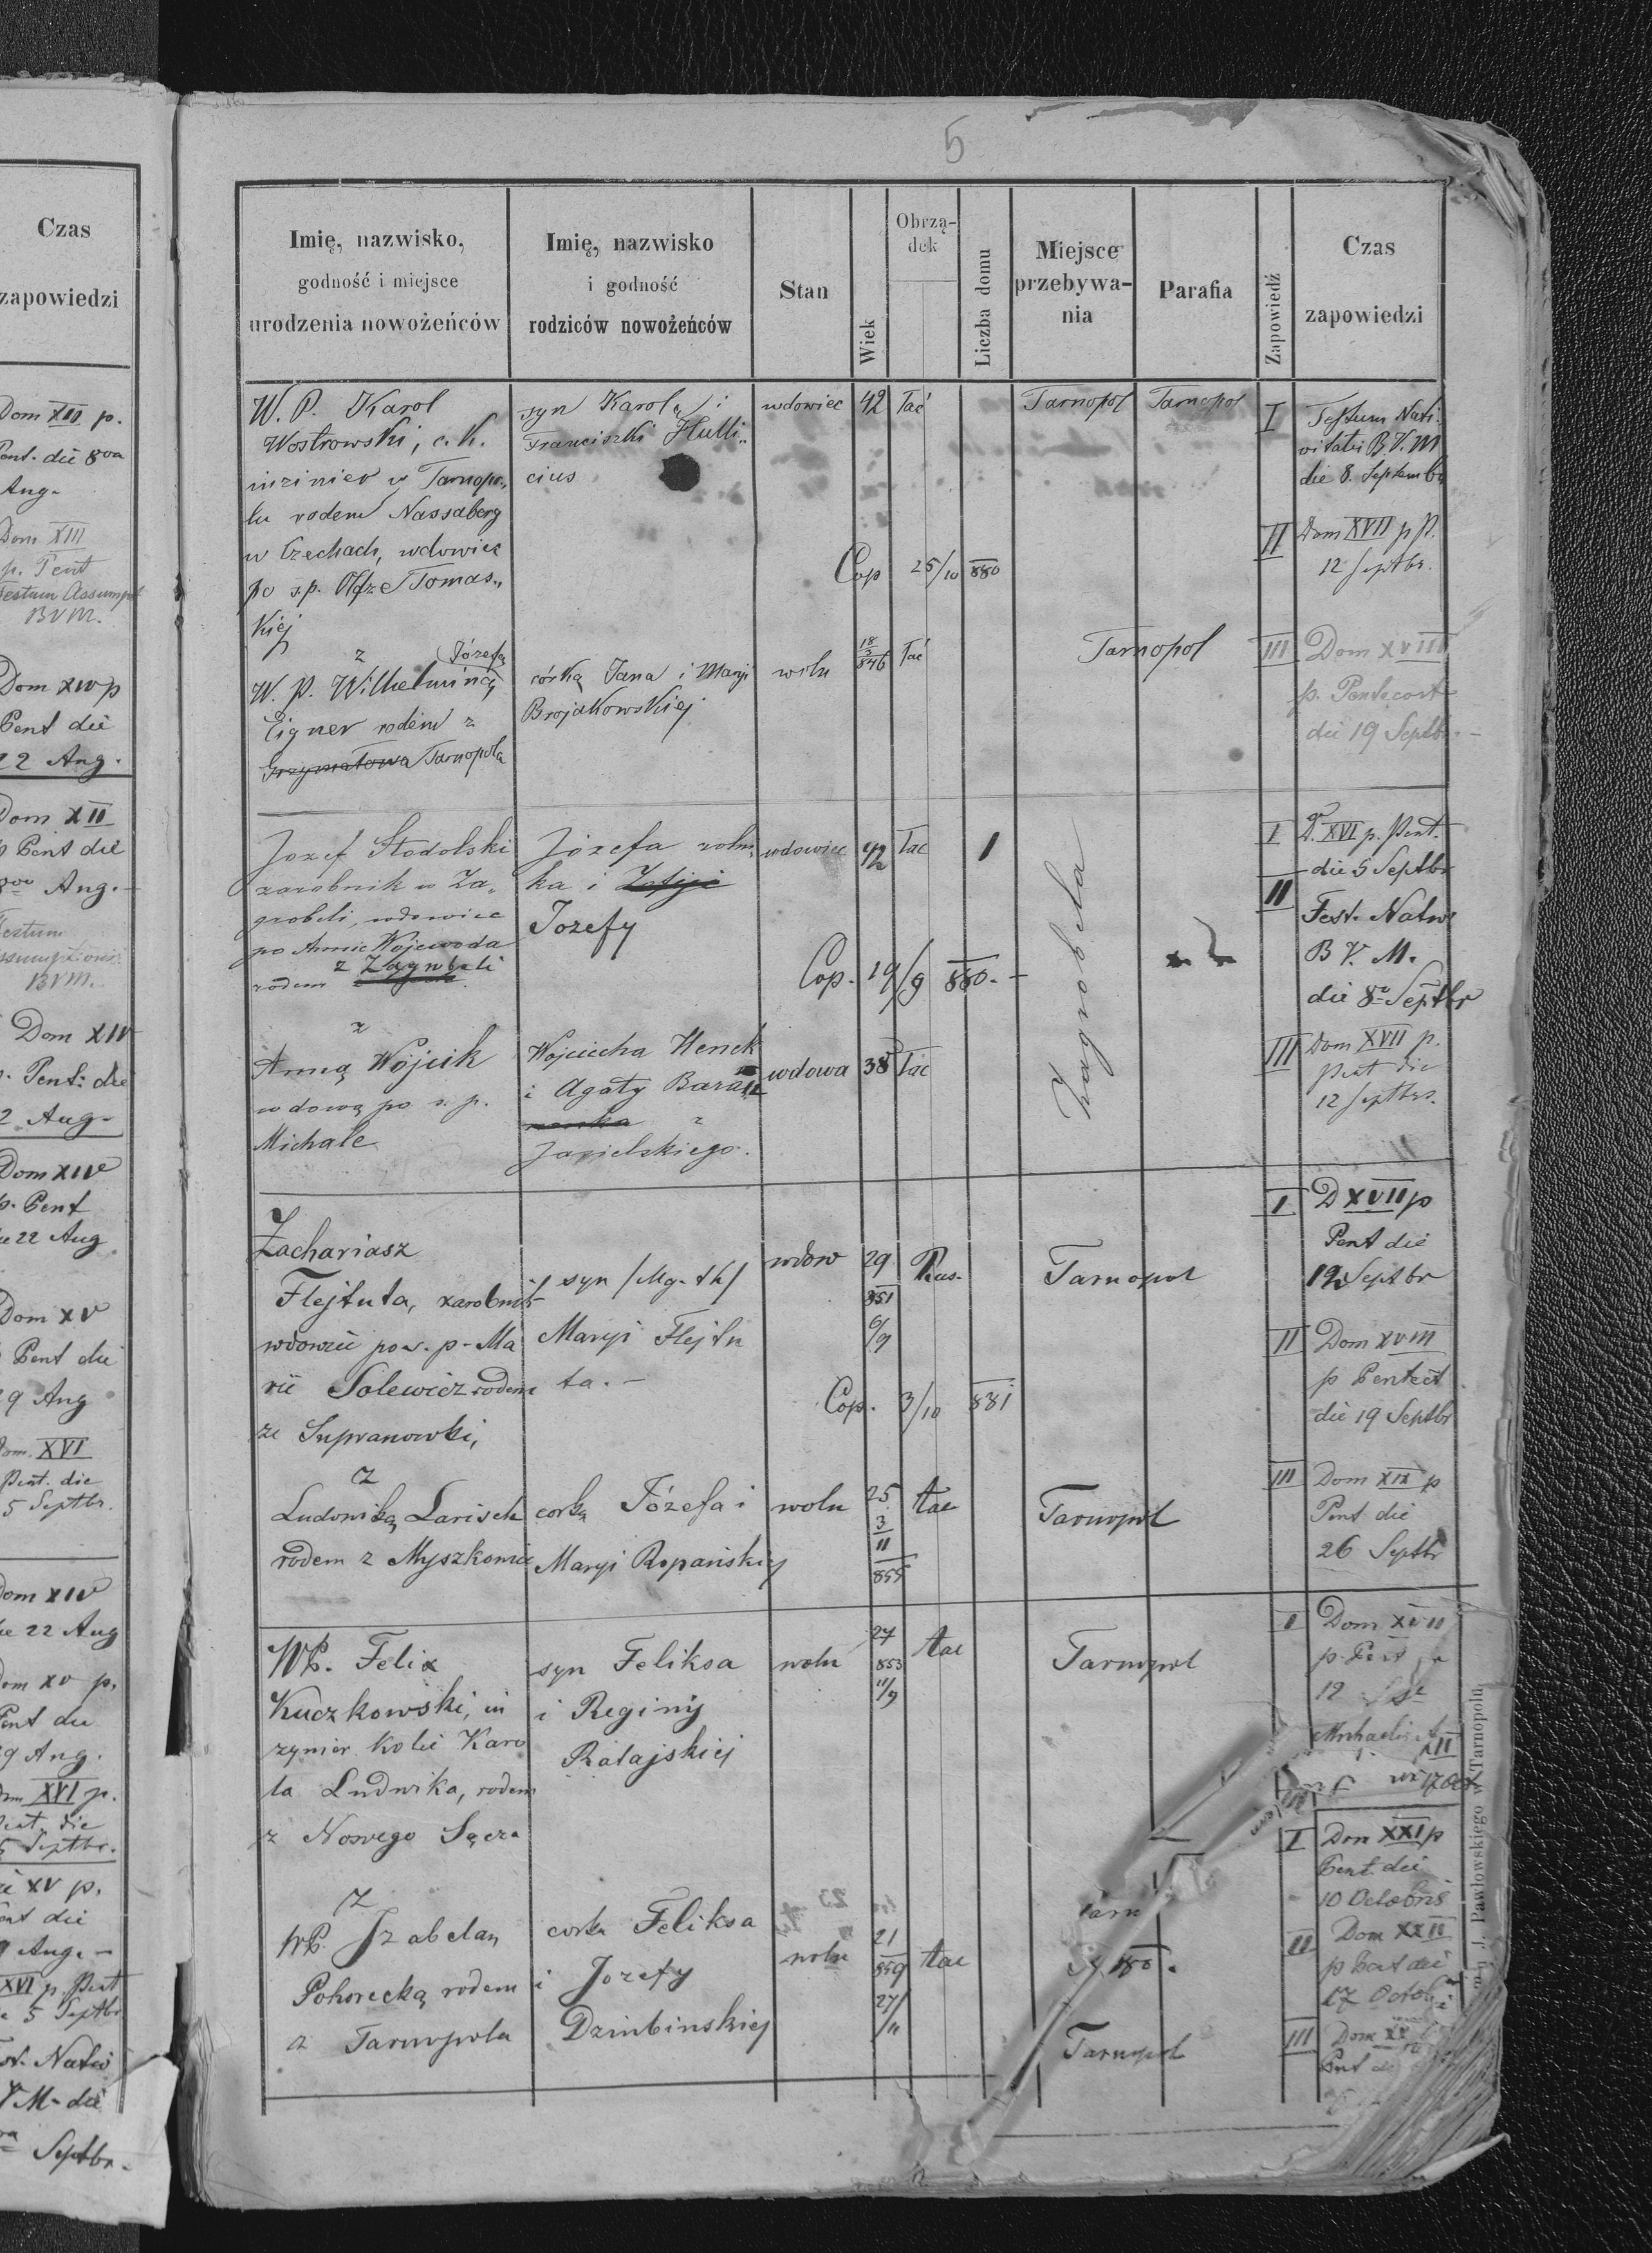 Czas
zapowiedzi
Dom XII p.
Pent. die 8va
Aug.
Dom XIII
p. Pent
Festum Assumpt
BVM.
Dom XIV p
Pent die
22 Aug.
Dom XII
p Pent die
8va Aug.
Festum
Assumptionis
BVM.
Dom XIV
p. Pent. die
22 Aug.
Dom XIV
p. Pent
die 22 Aug
Dom XV
p Pent die
29 Aug
Dom. XVI
Pent. die
5 Septbr.
Dom XIV
die 22 Aug
Dom XV p.
Pent die
29 Aug.
Dom XVI p.
Pent. die
5 Septbr.
XV p.
Pent die
Aug.
XVI p. Pent
5 Septbr
Nativ
V M. die
Septbr.
5
Imię, nazwisko,
godność i miejsce
urodzenia nowożeńców
Imię, nazwisko
i godność
rodziców nowożeńców
Stan
Wiek
Obrzą-
dek
Liczba domu
Miejsce
przebywa-
nia
Parafia
Zapowiedź
Czas
zapowiedzi
W. P. Karol
Wostrowski, c. k.
inzinier w Tarnopo„
lu rodem Nassaberg
w Czechach, wdowiec
po ś.p. Tomas„
kiej
syn Karola i
Franciszki Hulli„
cius
wdowiec 42 łać
Tarnopol Tarnopol
I Festum Nati
vitatis B.V.M
die 8. Septembr
II Dom XVII p P.
12 Septbr.
Cop 25/10 880
z
W. P. Wilhelminą Józefą
Cigner rodem z
Grzymałowa Tarnopola
córką Jana i Maryi
Brojakowskiej
woln 18/2 846 łać
Tarnopol
III Dom XVIII
p. Pentecost
die 19 Septbr.
Jozef Stodolski
zarobnik w Za„
grobeli, wdowiec
po Annie Wojewoda
rodem z Zagrobeli
Józefa rolni
ka i Zofiji
Jozefy
wdowiec 42 łac 1
Zagrobela
I D. XVI p. Pent.
die 5 Septbr
II Fest. Nativ
B V. M.
die 8 Septbr
Cop. 19/9 880.
z
Anną Wójcik
wdową po ś. p.
Michale
Wojciecha Henek
i Agaty Baran
z
Jasielskiego.
wdowa 38 łac
III Dom XVII p.
Pent die
12 Septbr.
Zachariasz
Flejtuta, zarobnik
wdowiec po ś. p. Ma
rii Solewicz rodem
ze Supranowki,
syn /Mg. th/
Maryi Flejtu
ta.
wdow 29 Rus.
851
6/9
Tarnopol
I D XVII p
Pent die
12 Septbr
II Dom XVIII
p Pentect
die 19 Septbr
Cop. 3/10 881
z
Ludowiką Larisch
rodem z Myszkowic
corką Józefa i
Maryi Ropańskiej
woln 25 łac
3
11
855
Tarnopol
III Dom XIX p
Pent die
26 Septbr
WP. Felix
Kuczkowski, in
zynier kolei Karo
la Ludwika, rodem
z Nowego Sącza
syn Feliksa
i Reginy
Ratajskiej
woln 27 łac
853
11/9
Tarnopol
I Dom XVII
p. Pent
12
Michaelis
I Dom XXI p
Pent. die
10 Octobris
II Dom XXII
p Pent die
17 Octobr
z
WP. Izabelą
Pohorecką rodem
z Tarnopola
corka Feliksa
i Jozefy
Dzimbinskiej
woln 21 łac
859
27/11
Tarnopol
III Dom
Pent die
J. Pawłowskiego w Tarnopolu.